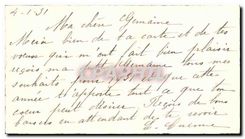 4-1-31
Ma chère Germaine
Merci bien de ta carte et de tes
voeux qui m'ont fait bien plaisir
reçois ma ptte Germaine tous mes
souhaits pour 1931 et que cette
année t'apporte tout ce que ton
coeur peut désirer. Reçois de bons
baisers en attendant de te revoir